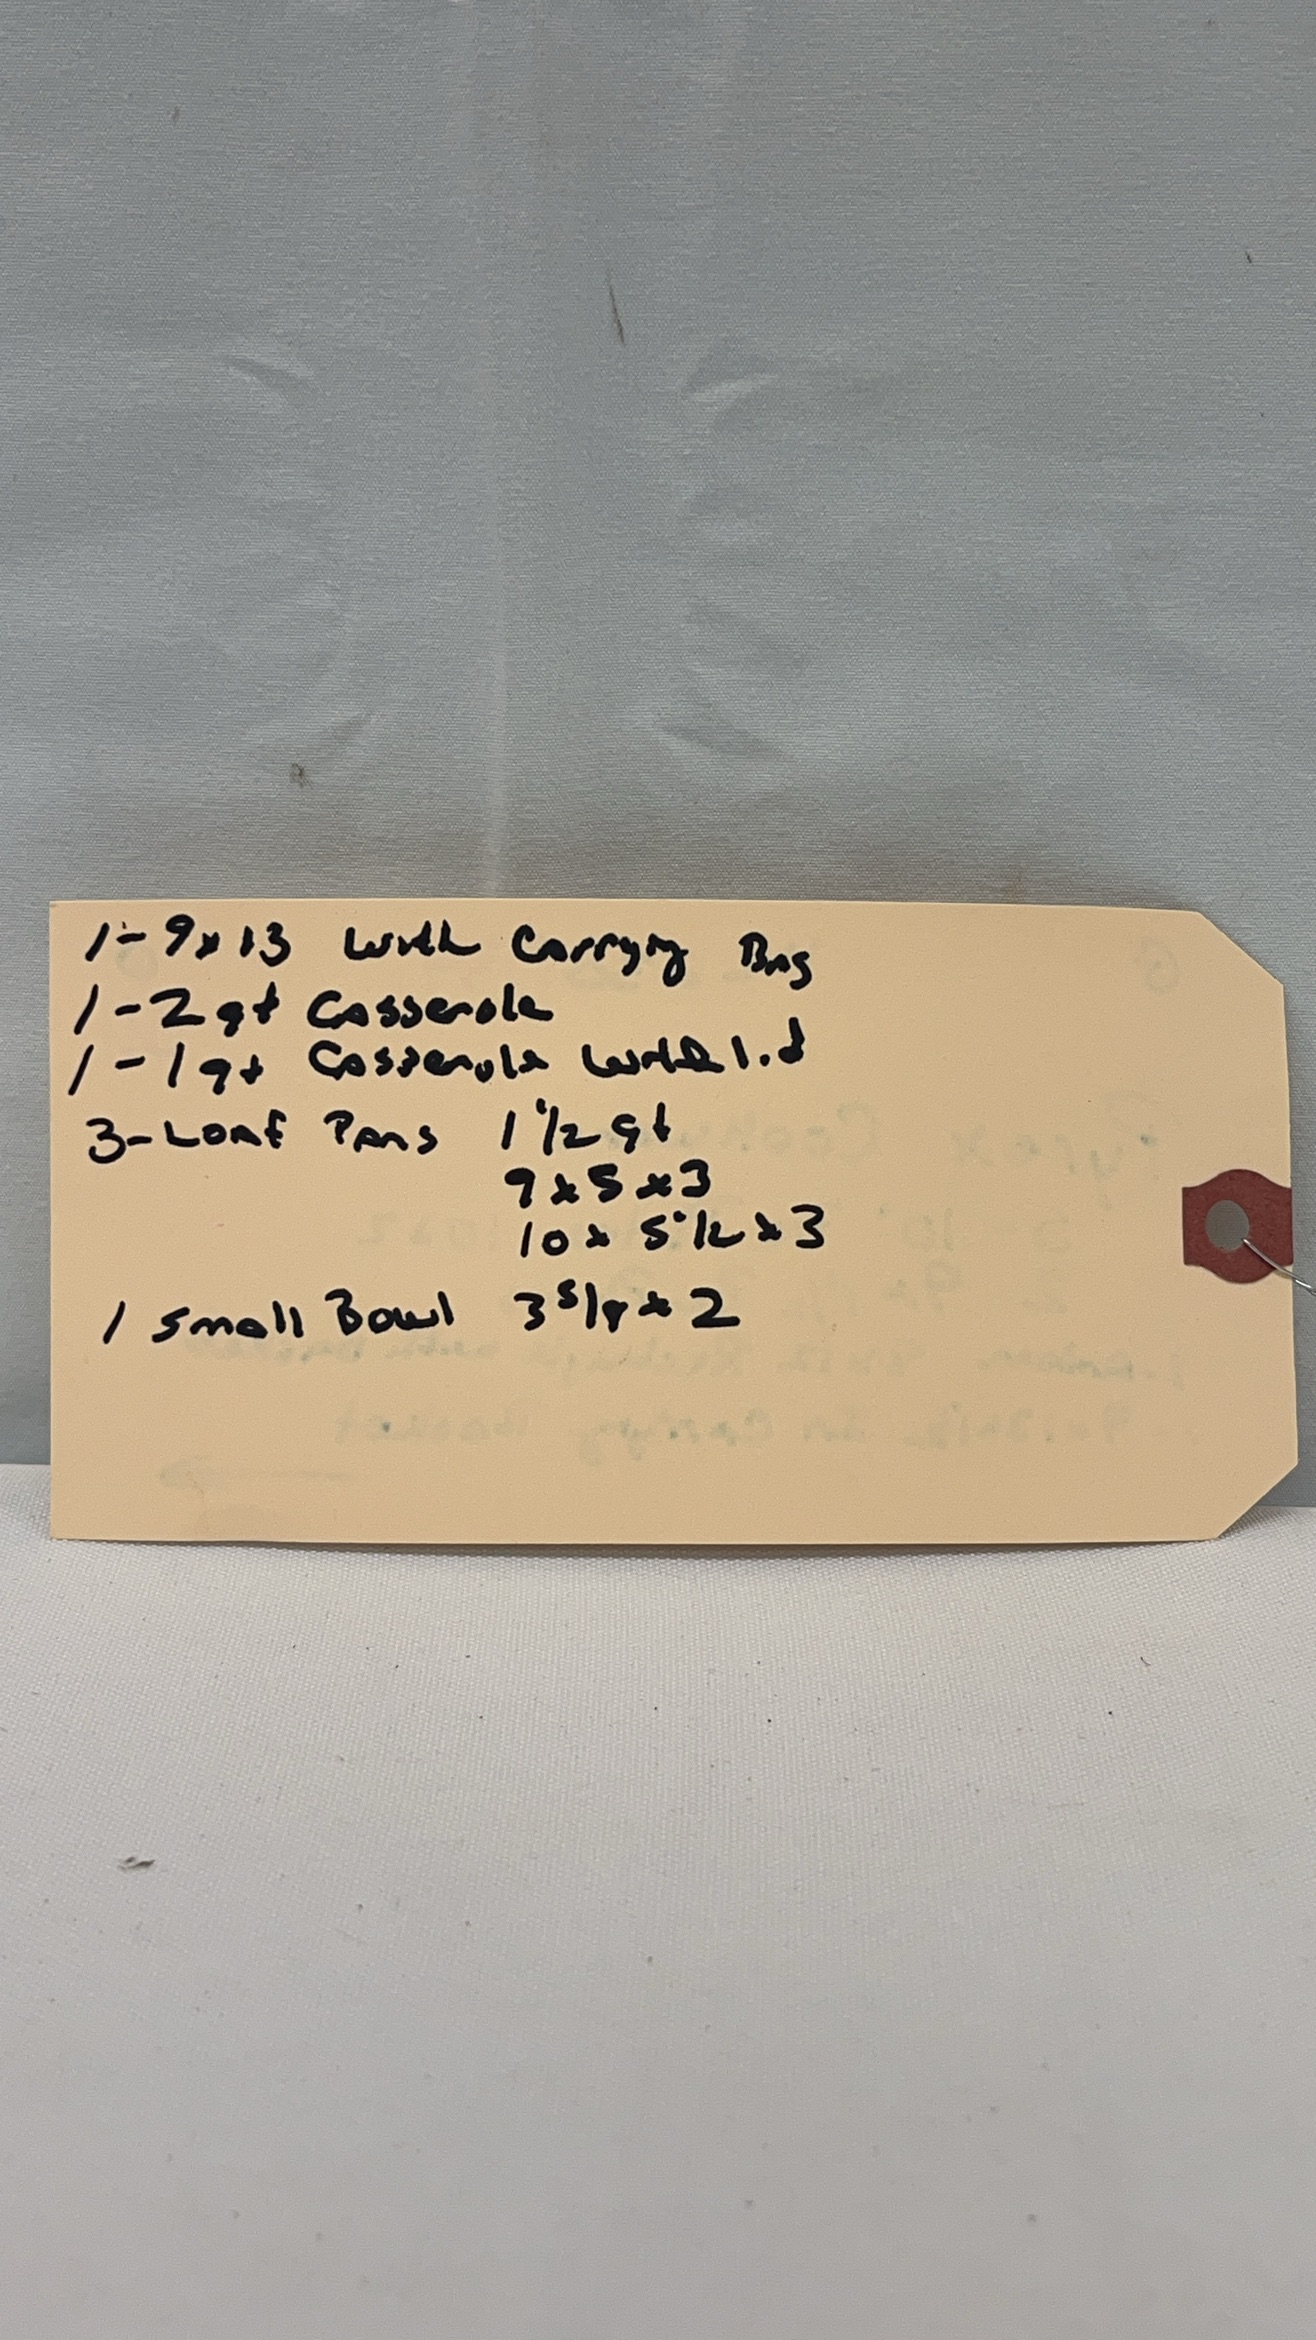 1-9x13 with Carrying Bag
1-2qt Casserole
1-1qt Casserole with lid
3-Loaf Pans 1 1/2 qt
9x5x3
10x 5 1/2 x 3
1 Small Bowl 3 5/8 x 2